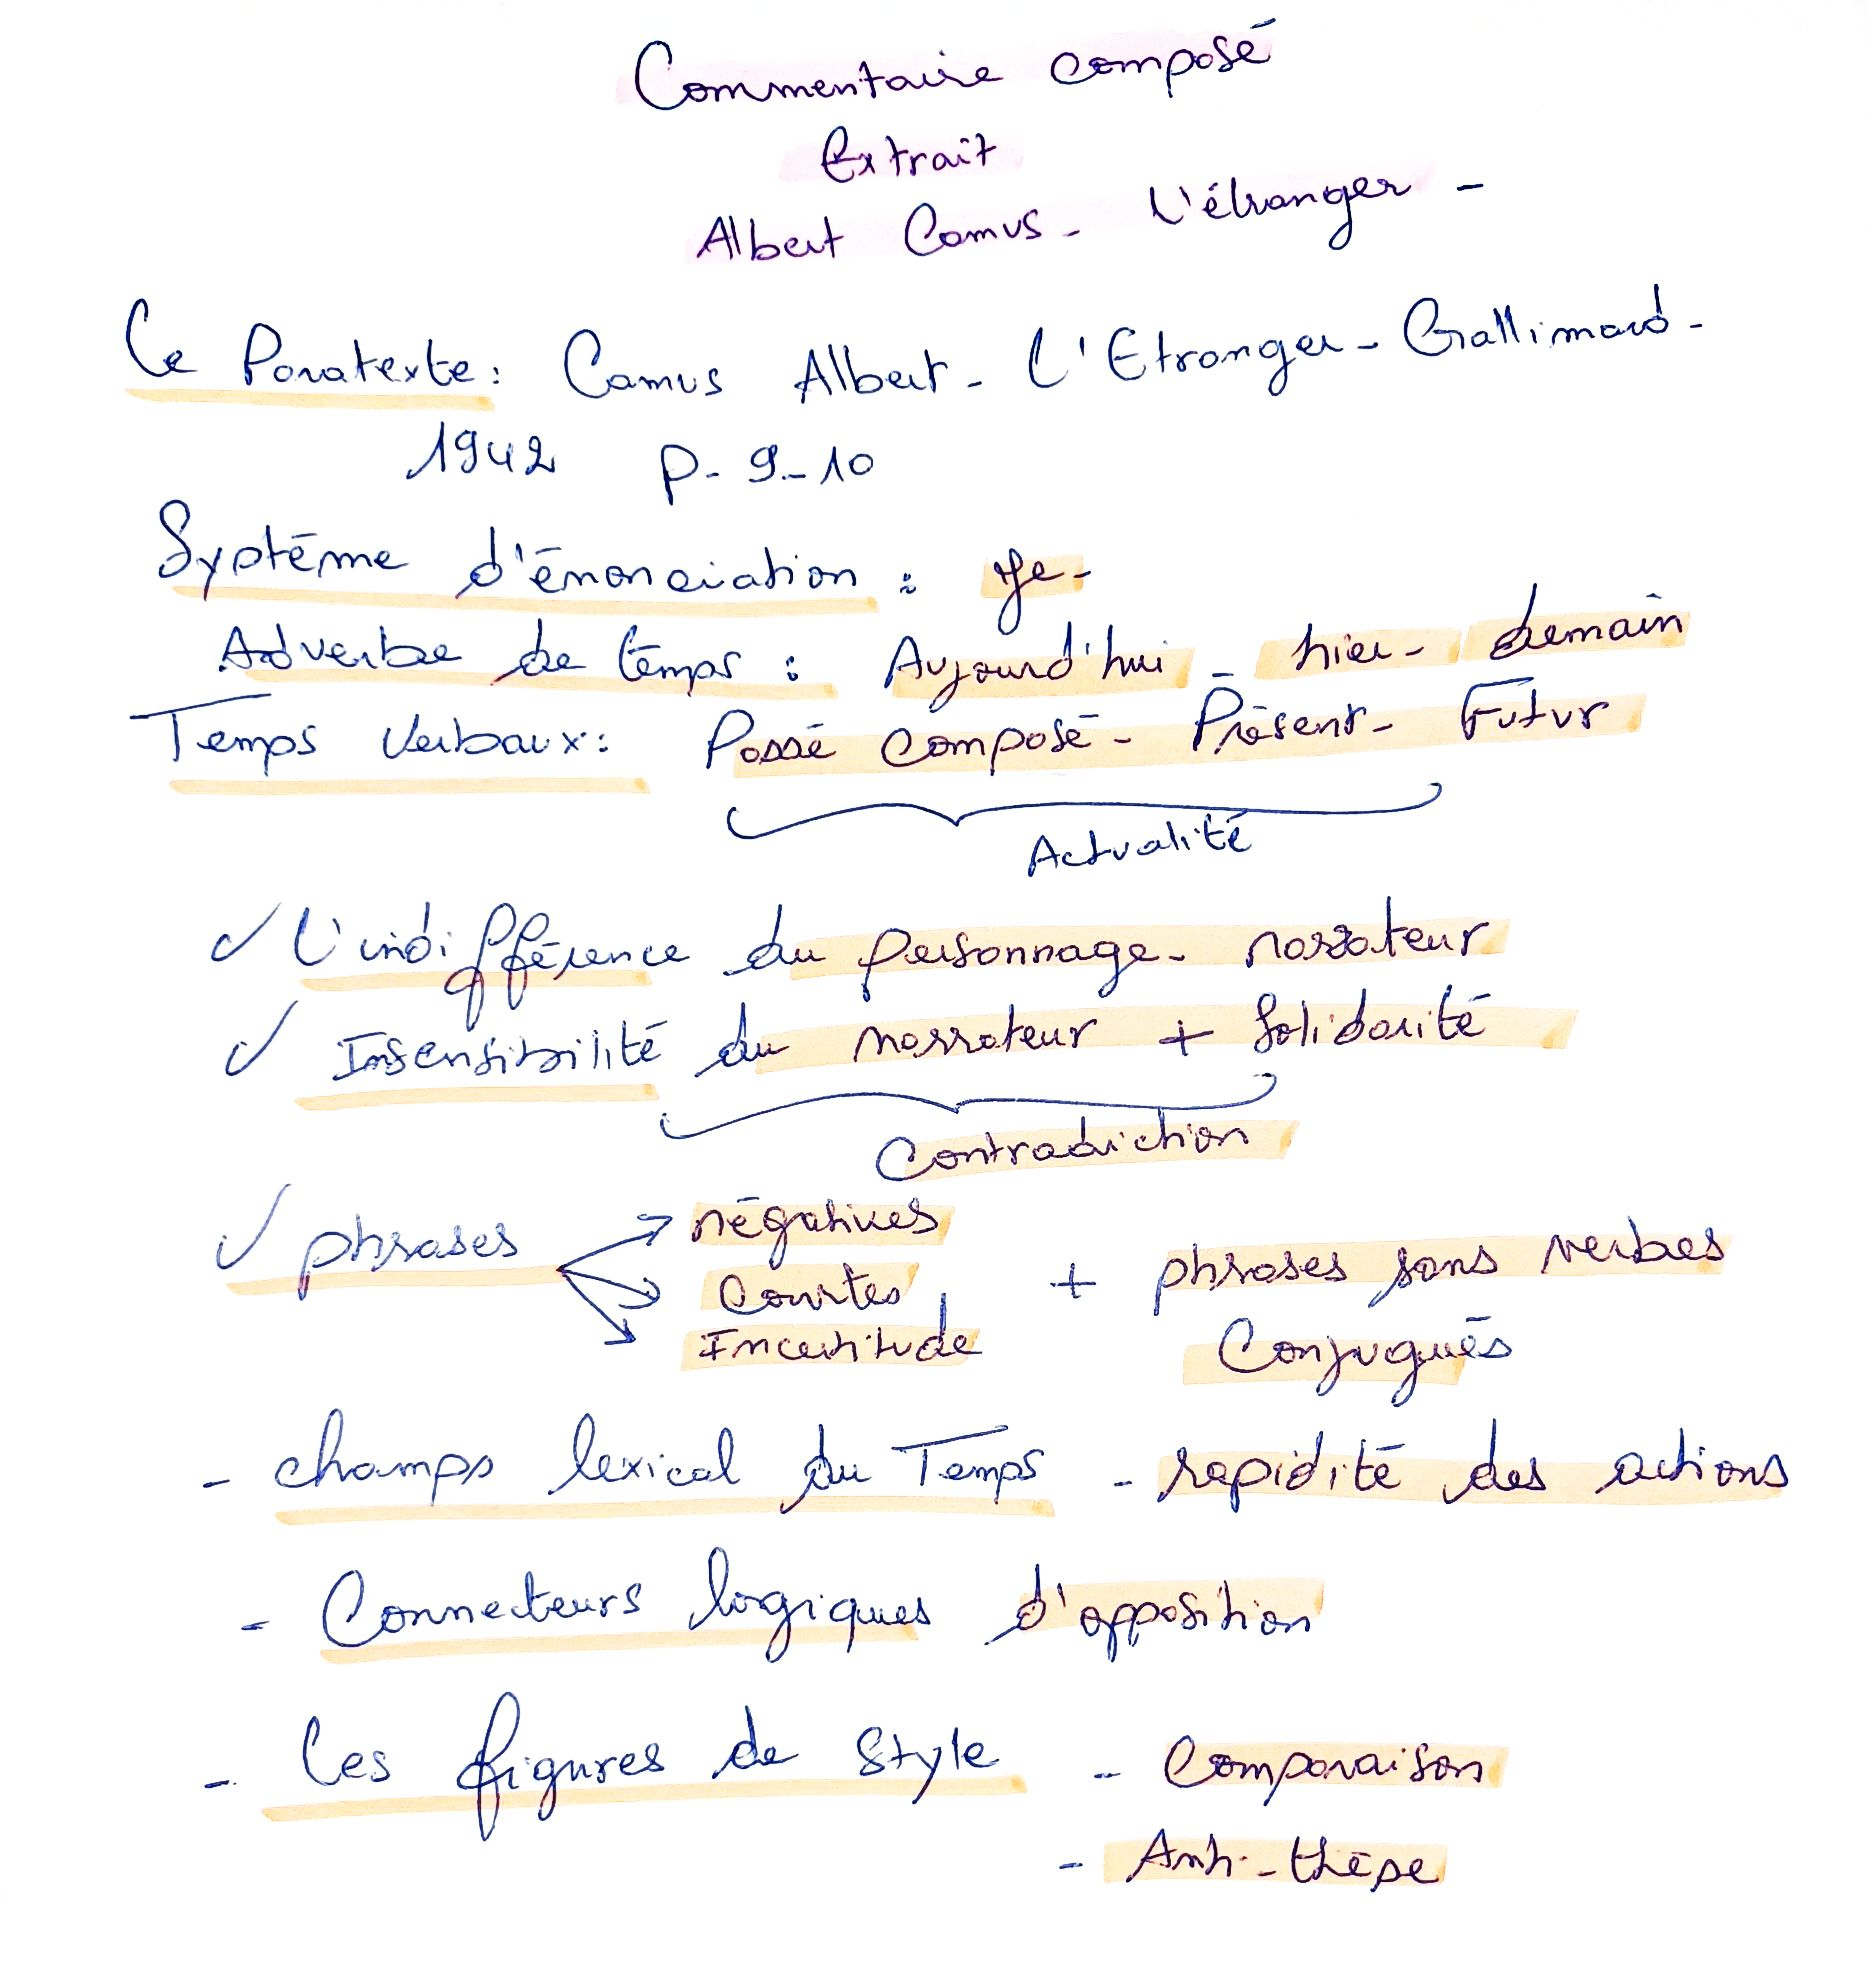 Commentaire composé
Extrait
Albert Camus - L'étranger -
Le Paratexte : Camus Albert - L'Etranger - Gallimard -
1942 p- 9-10
Système d'énonciation : Je -
Adverbe de temps : Aujourd'hui - hier - demain
Temps verbaux : Passé composé - Présent - Futur
Actualité
✓ L'indifférence du personnage - narrateur
✓ Insensibilité du narrateur + Solidarité
Contradiction
négatives
✓ phrases courtes, + phrases sans verbes
Incertitude Conjugués
- champs lexical du Temps - rapidité des actions
- Connecteurs logiques d'opposition
- Les figures de style - Comparaison
- Anti-thèse